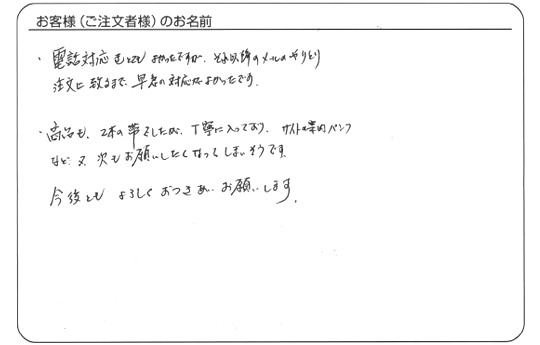 お客様(ご注文者様)のお名前
・電話対応もとてもよかったですが、それ以降のメールのやりとり
注文に致るまで、早急の対応がよかったです。
・商品も、2本の帯でしたが、丁寧に入っており、サイトの案内パンフ
など、又、次もお願いしたくなってしまいそうです。
今後とも よろしく おつきあい お願いします。